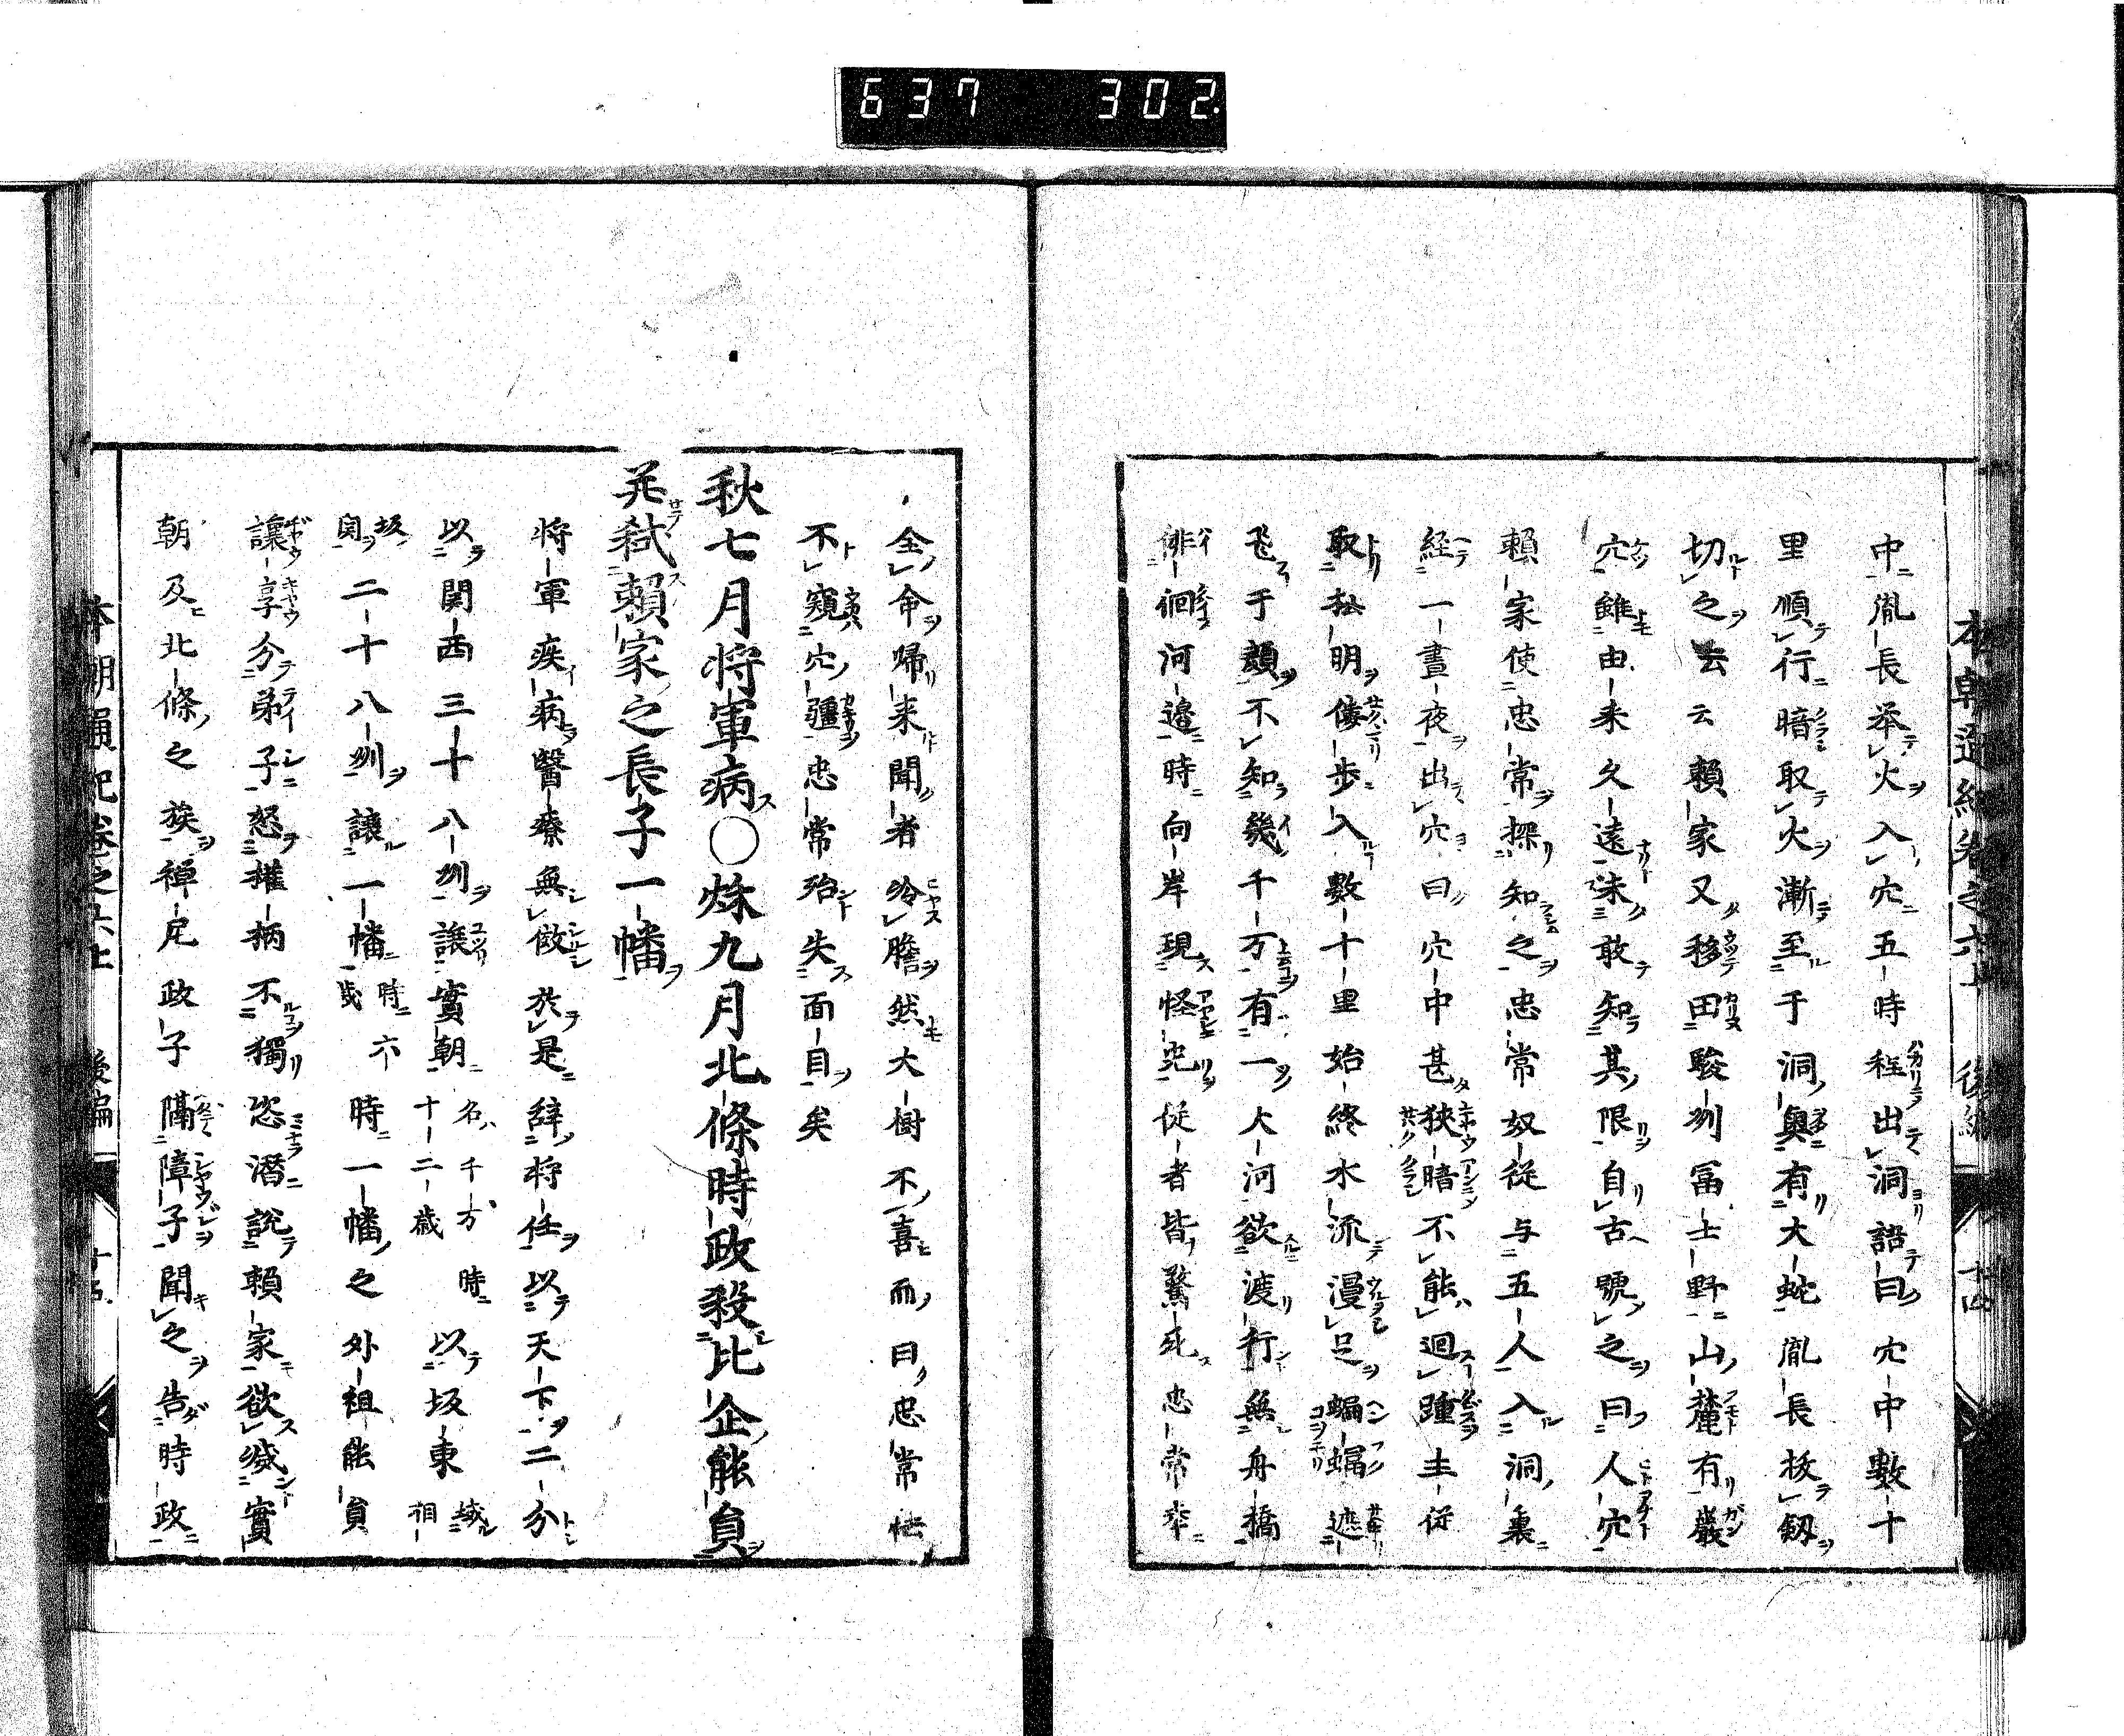 637 302
中胤長举火入穴五時程出洞語曰穴中數十
里順行暗取火漸至于洞奥有大蛇胤長拔釼
切之云云賴家又移田駿州冨士野山麓有巖
穴雖由来久遠未敢知其限自古號之曰人穴
賴家使忠常探知之忠常奴従与五人入洞裏
経一晝夜出穴曰穴中甚狹暗不能廻踵主従
取松明僂歩入數十里始終水流漫足蝙蝠遮
飛于顔不知幾千万有一大河欲渡行無舟橋
俳徊河邉時向岸現怪従者皆驚死忠常幸
全命歸来聞者冷膽然大樹不喜而曰忠常怯
不窺穴疆忠常殆失面目矣
秋七月将軍病〇秋九月北條時政殺比企能員
并弑賴家之長子一幡
将軍疾病醫療無倣於是辞将任以天下二分
以関西三十八州譲實朝 名千万時十二歳 以坂東
坂関二十八州譲一幡 時六歳 時一幡之外祖能員
讓享分弟子怒權柄不獨恣潜說賴家欲滅實
朝及北條之族禅尼政子隔障子聞之告時政
本朝通紀巻之六上 後編